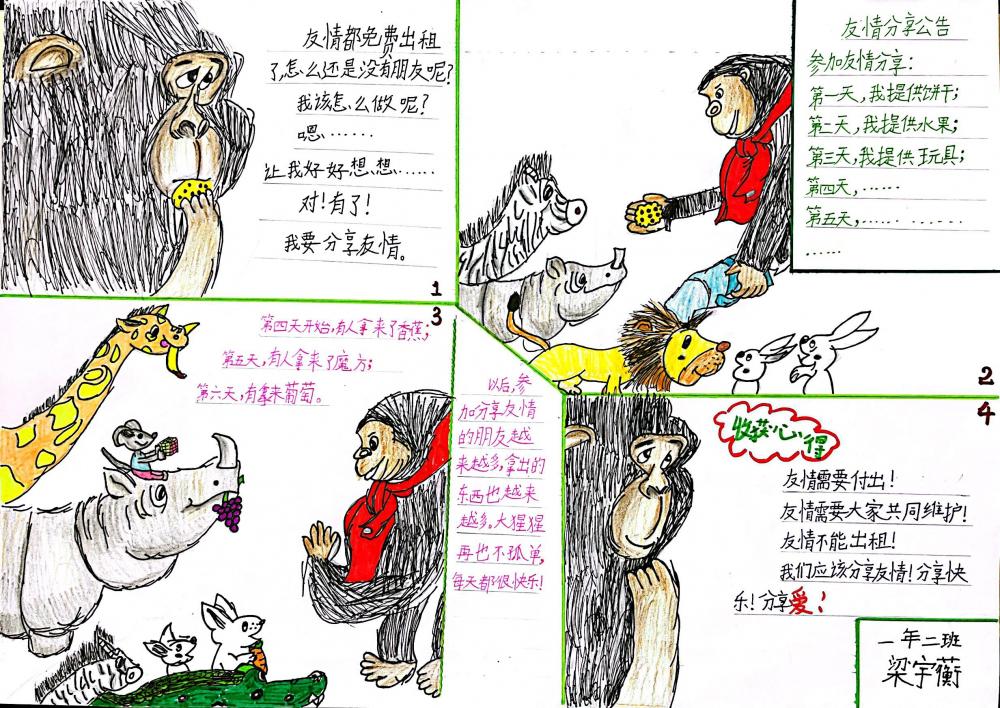 友情都免费出租
了怎么还是没有朋友呢?
我该怎么做呢?
嗯……
让我好好想想……
对!有了!
我要分享友情。
1
友情分享公告
参加友情分享:
第一天,我提供饼干;
第二天,我提供水果;
第三天,我提供玩具;
第四天,……
第五天,……
……
2
3
第四天开始,有人拿来了香蕉;
第五天,有人拿来了魔方;
第六天,有拿来葡萄。
以后,参
加分享友情
的朋友越
来越多,拿出的
东西也越来
越多。大猩猩
再也不孤单,
每天都很快乐!
4
收获心得
友情需要付出!
友情需要大家共同维护!
友情不能出租!
我们应该分享友情!分享快
乐!分享爱!
一年二班
梁宇蘅